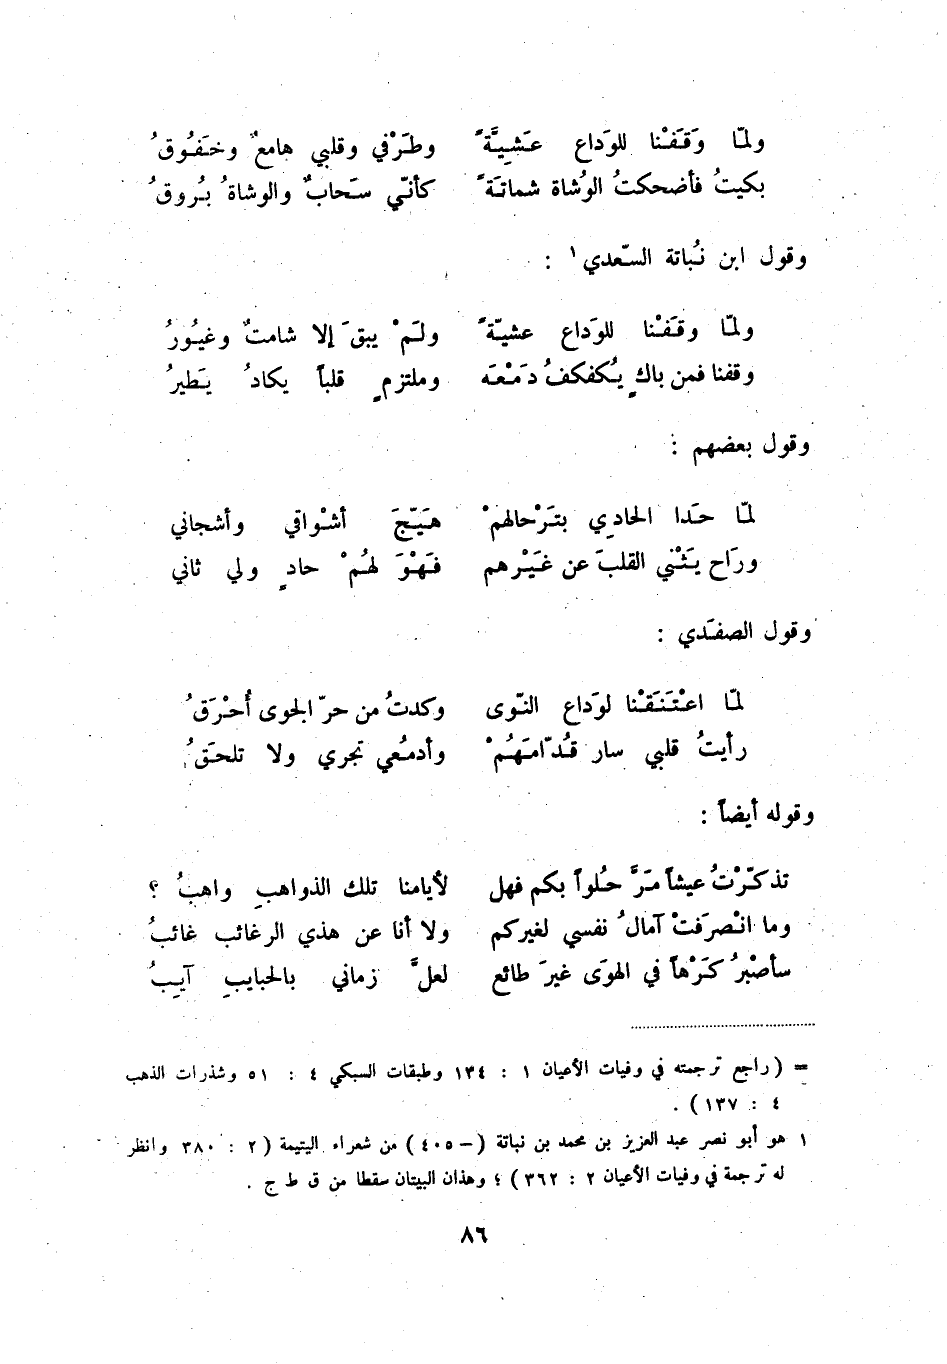 ولمّا وَقَفْنا للوَداع عَشِيَّةً وطَرْفي وقلبي هامعٌ وخَفُوقُ
بكيتُ فأضحكتُ الوُشاة شماتَةً كأنّي سَحابٌ والوشاةُ بُروقُ
وقول ابن نُباتة السّعدي ١ :
ولمّا وقَفْنا للوَداع عشيّةً ولَمْ يبقَ إلا شامتٌ وغيُورُ
وقفنا فمن باكٍ يُكفكفُ دَمْعَه وملتزمٍ قلباً يكادُ يَطيرُ
وقول بعضهم :
لمّا حَدا الحادِي بتَرْحالهمْ هَيّجَ أشْواقي وأشجاني
ورَاح يَثْني القلبَ عن غَيْرهم فَهْوَ لهُمْ حادٍ ولي ثاني
وقول الصفَدي :
لمّا اعْتَنَقْنا لوَداع النّوى وكدتُ من حرّ الجوى أُحْرَقُ
رأيتُ قلبي سار قُدّامَهُمْ وأدمُعي تجري ولا تلحَقُ
وقوله أيضاً :
تذكّرْتُ عيشاً مَرَّ حُلواً بكم فهل لأيامنا تلك الذواهبِ واهبُ ؟
وما انْصرَفتْ آمالُ نفسي لغيركم ولا أنا عن هذي الرغائب غائبُ
سأصْبرُ كَرْهاً في الهوَى غيرَ طائع لعلَّ زماني بالحبايبِ آيِبُ
= ( راجع ترجمته في وفيات الأعيان ١ : ١٣٤ وطبقات السبكي ٤ : ٥١ وشذرات الذهب
٤ : ١٣٧ ) .
١ هو أبو نصر عبد العزيز بن محمد بن نباتة ( – ٤٠٥ ) من شعراء اليتيمة ( ٢ : ٣٨٠ وانظر
له ترجمة في وفيات الأعيان ٢ : ٣٦٢ ) ؛ وهذان البيتان سقطا من ق ط ج .
٨٦